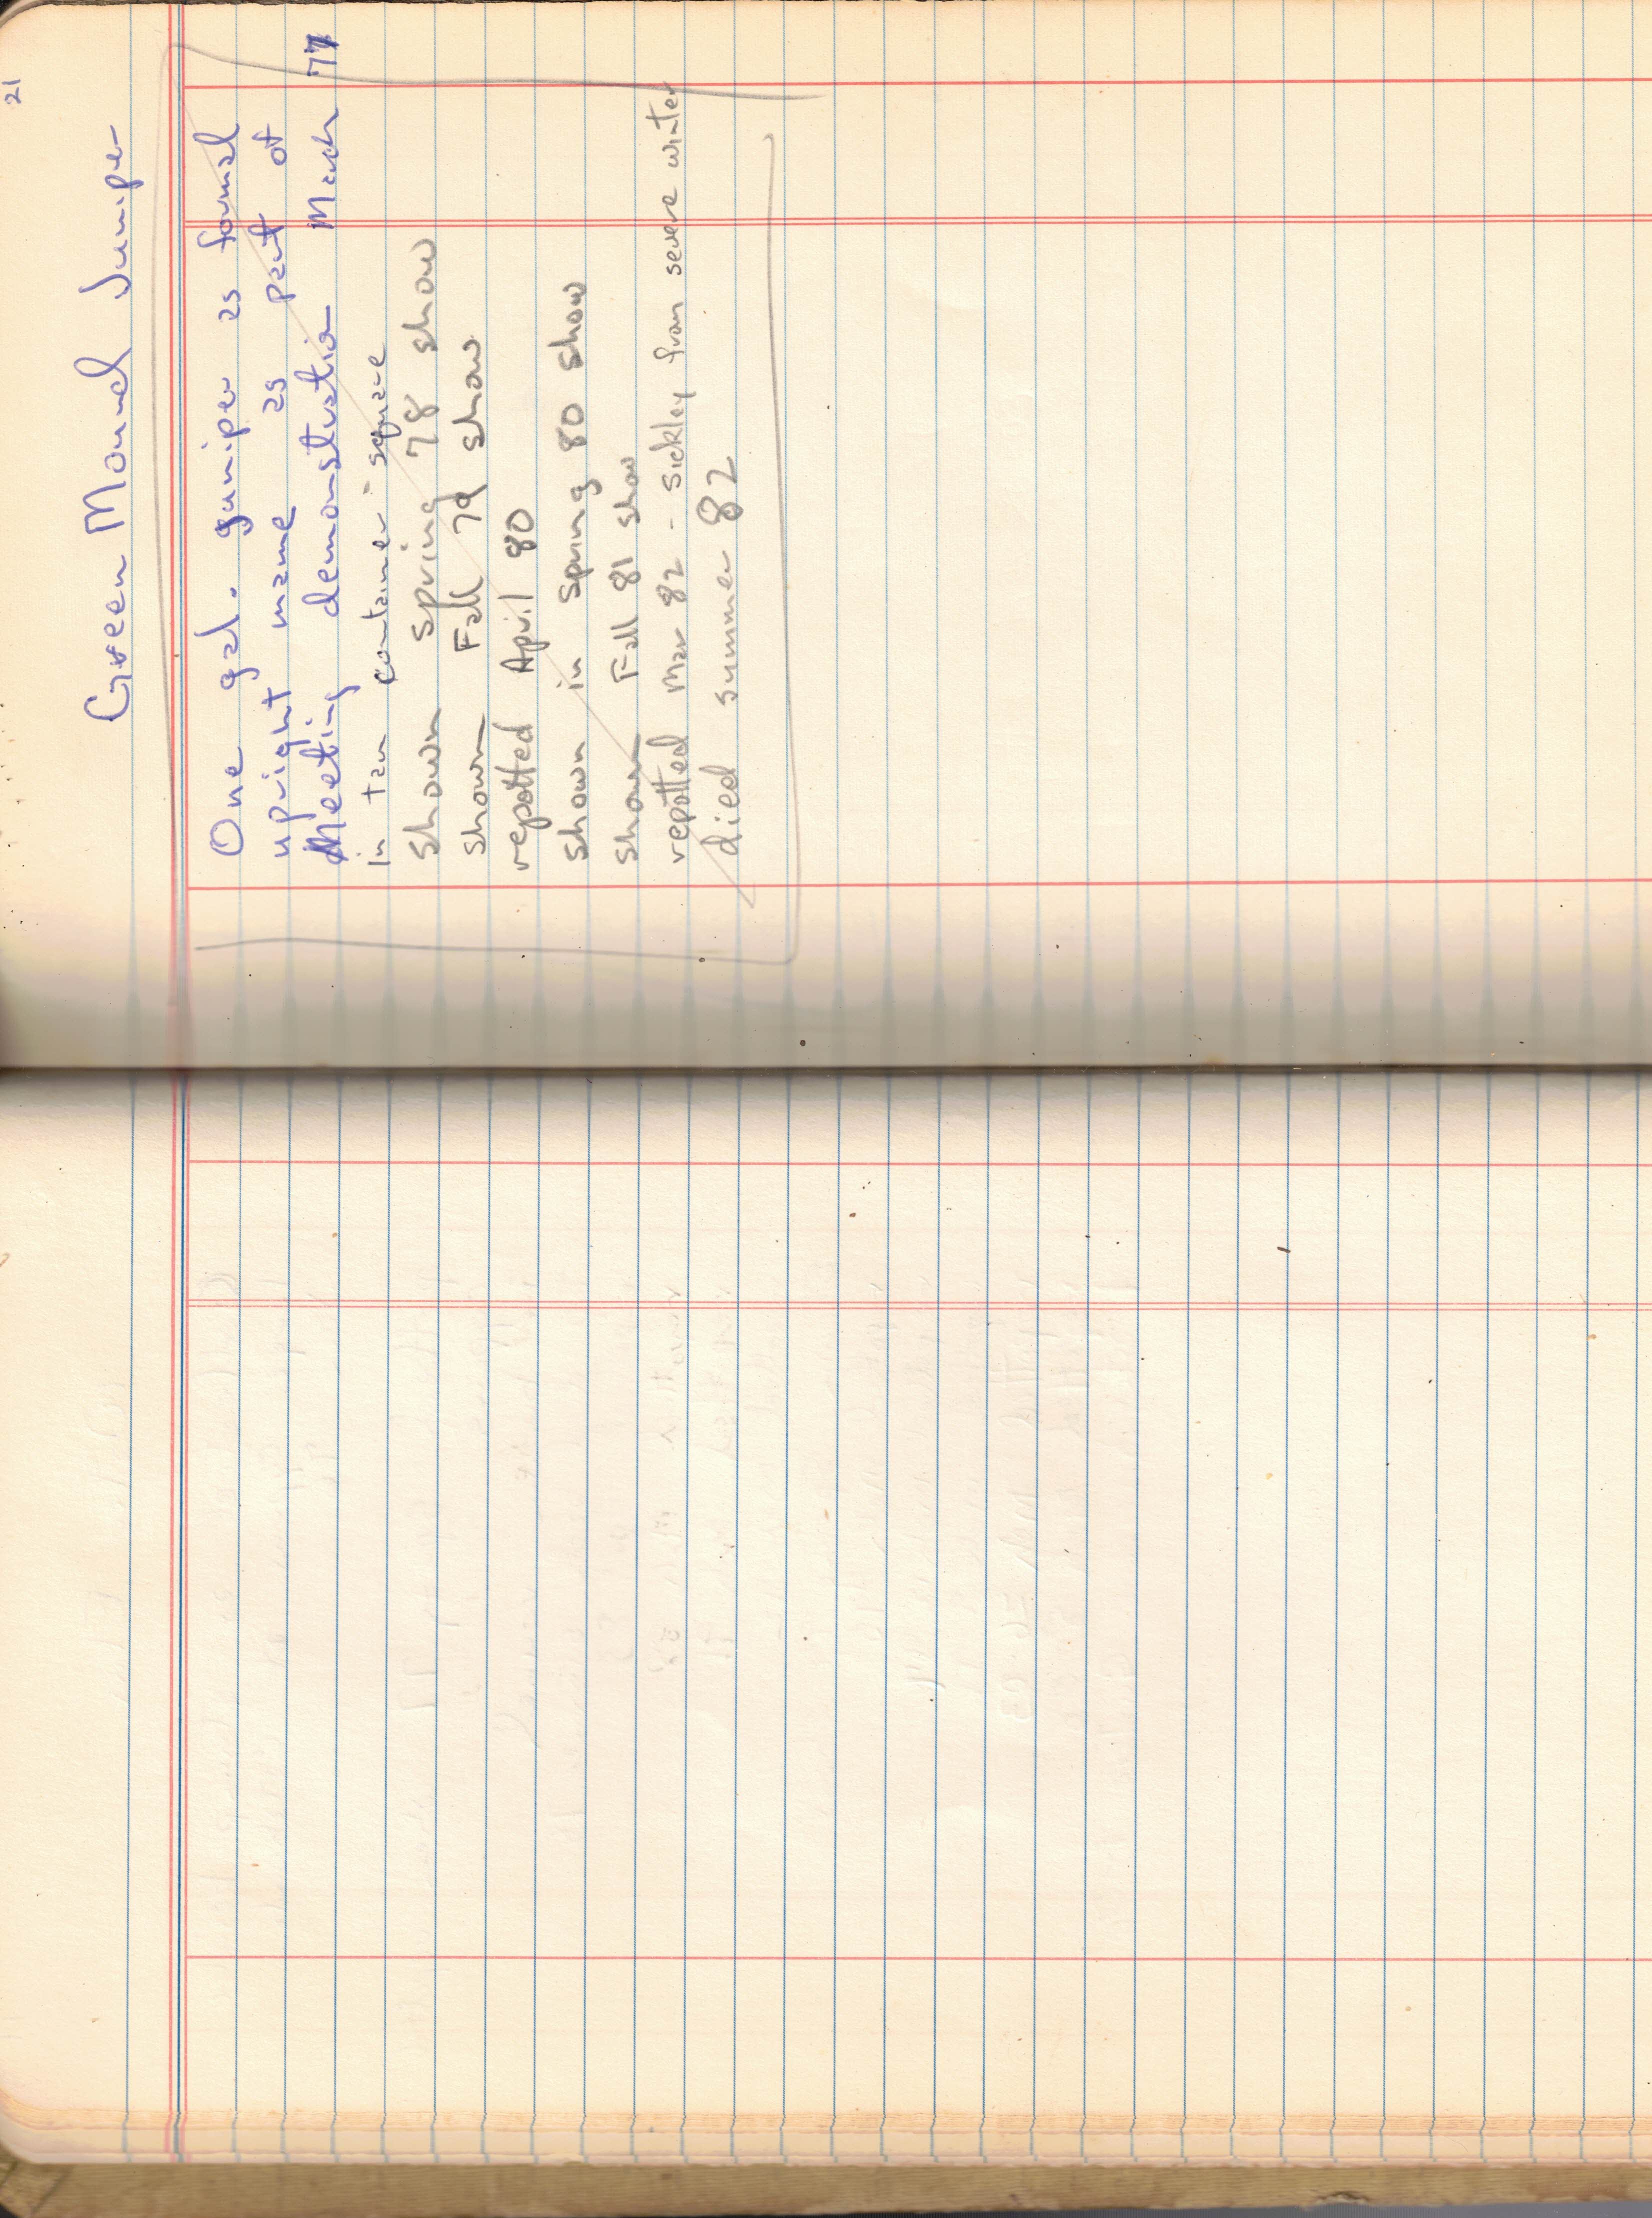 21
Green Mound Juniper
One gal. juniper as formal
upright mame as part of
Meeting demonstration March 77
in tan container - square
shown spring 78 show
shown Fall 79 show
repotted April 80
shown in spring 80 show
shown Fall 81 show
repotted Mar 82 - sickley from severe winter
died summer 82